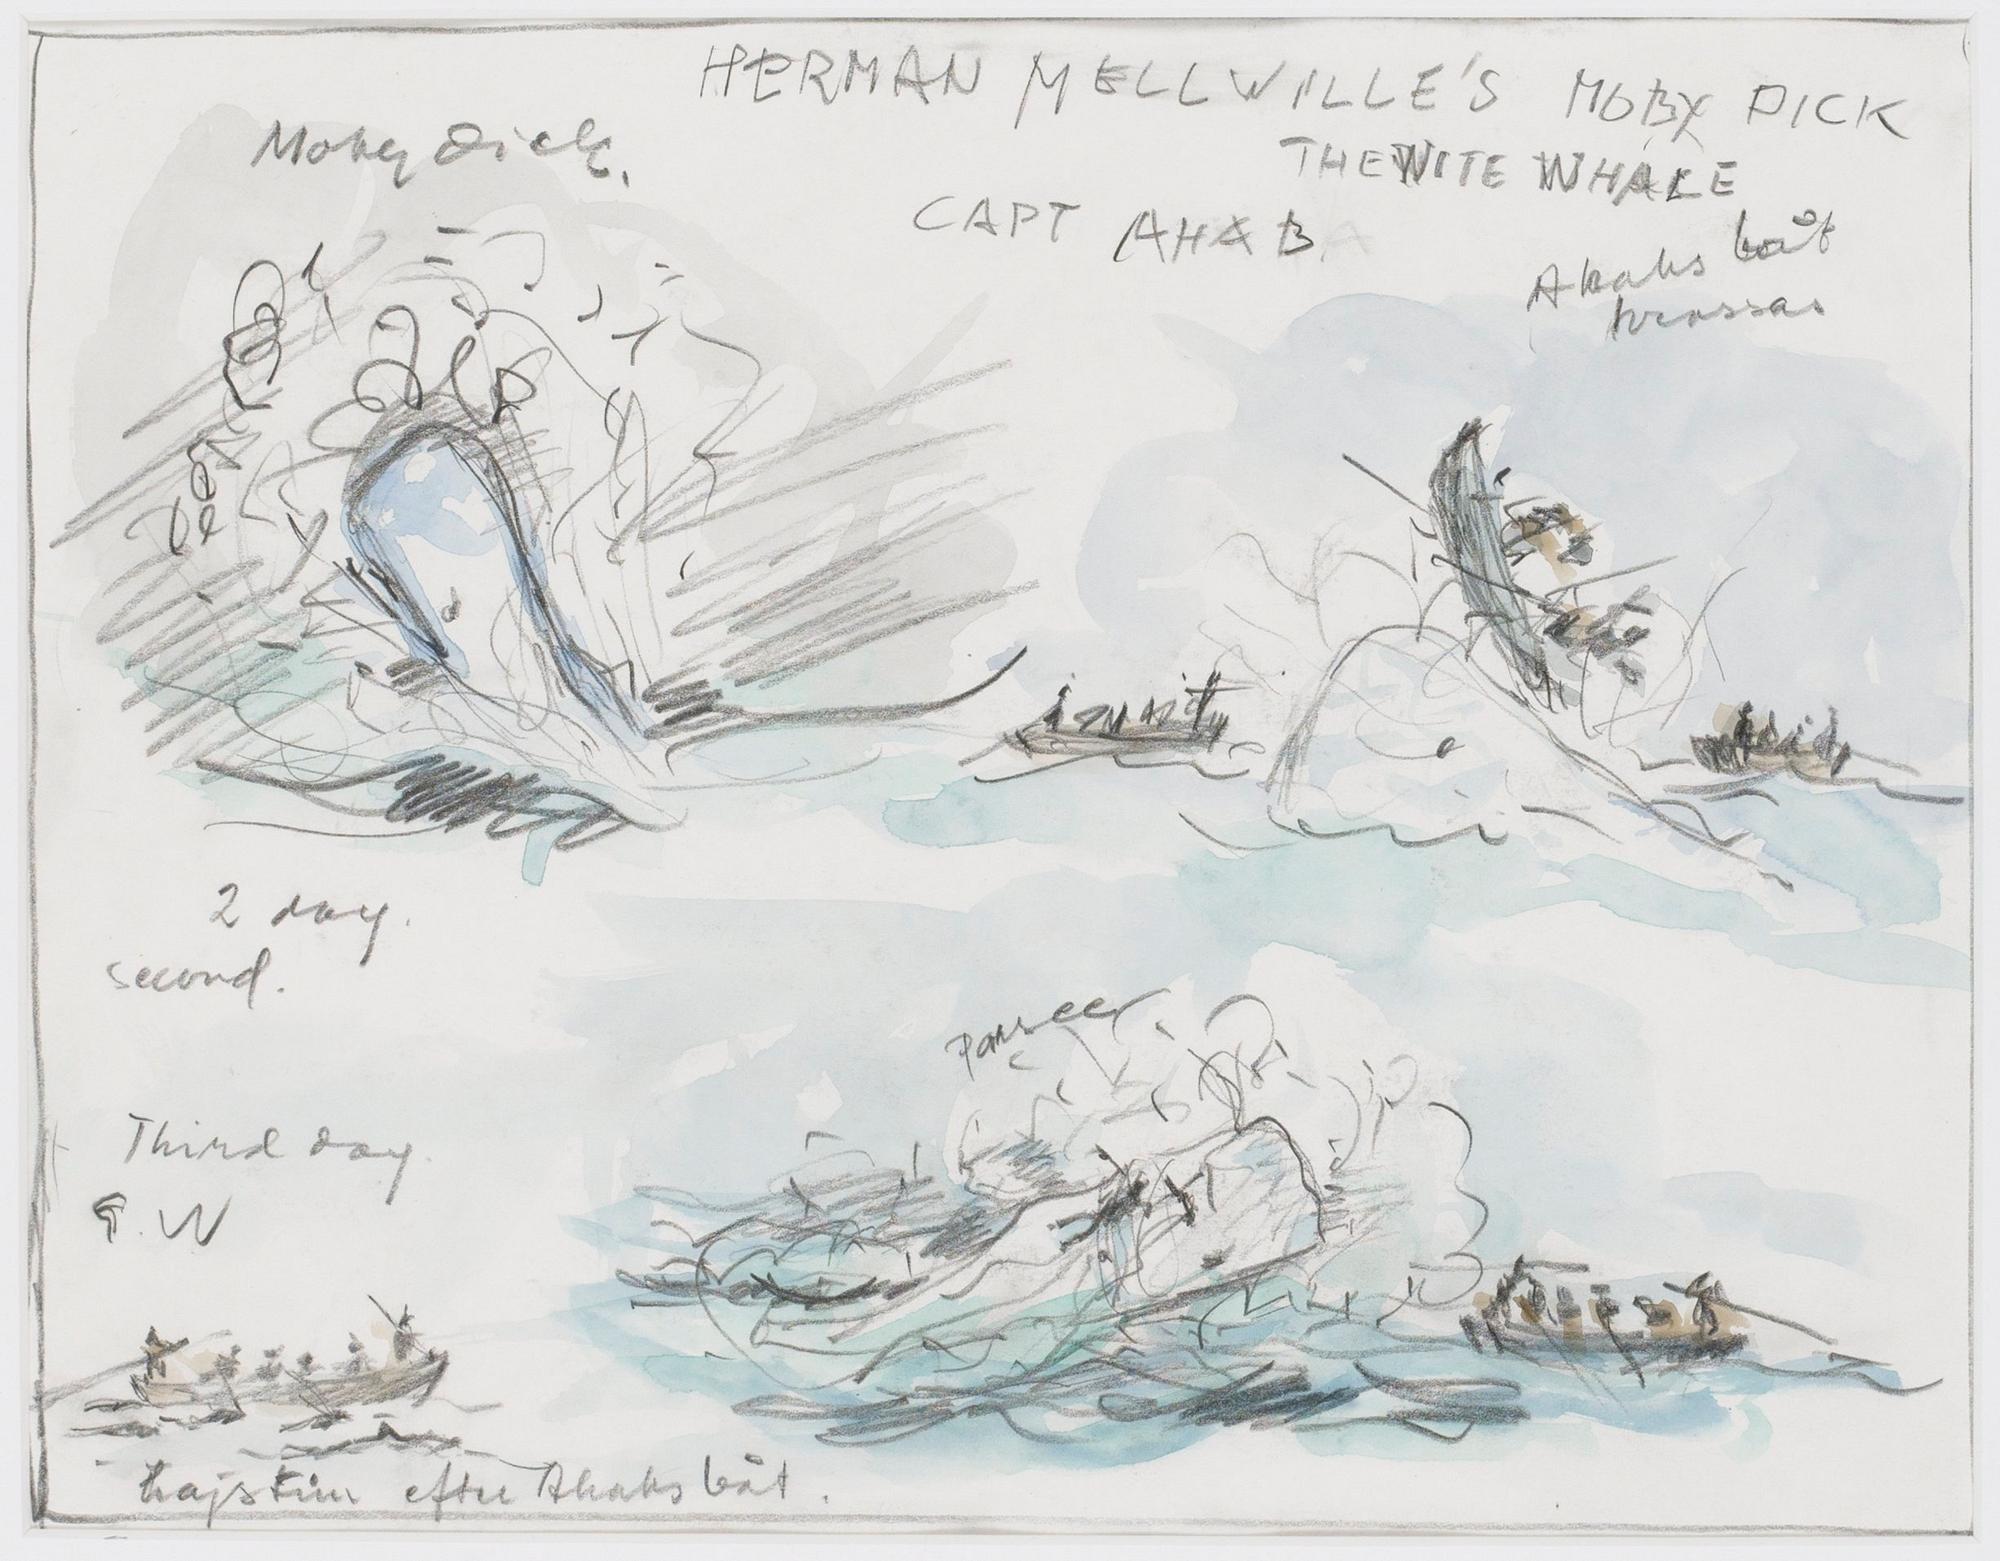 HERMAN MELLWILLE'S MOBY DICK
THE WITE WHALE
CAPT AHAB
Moby Dick.
Ahabs båt
krossas
2 day.
second.
Parsee
Third day.
G.W
hajstim efter Ahabs båt.